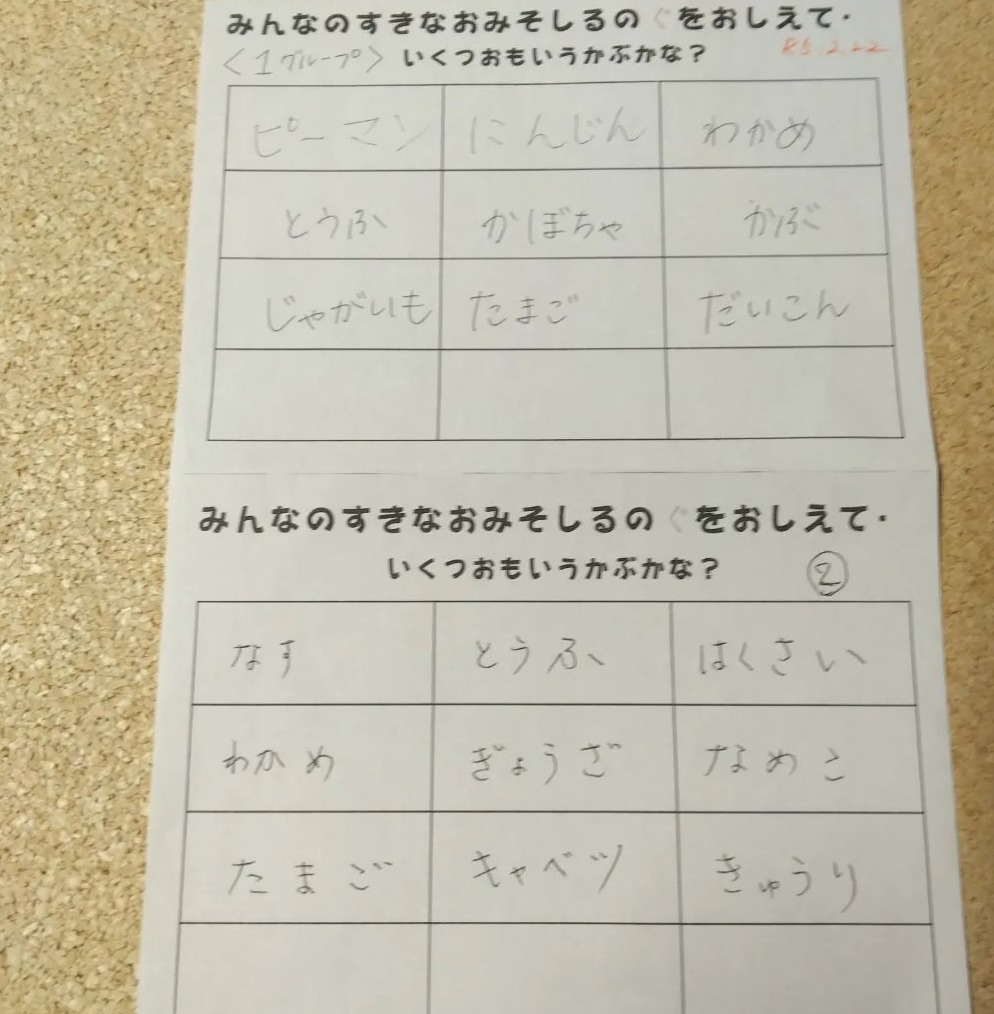 みんなのすきなおみそしるのぐをおしえて・
<1グループ> いくつおもいうかぶかな? R5.2.22
ピーマン にんじん わかめ
とうふ かぼちゃ かぶ
じゃがいも たまご だいこん
みんなのすきなおみそしるのぐをおしえて・
いくつおもいうかぶかな? ②
なす とうふ はくさい
わかめ ぎょうざ なめこ
たまご キャベツ きゅうり